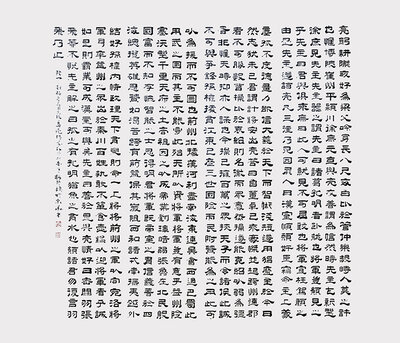 亮躬耕隴畝好為梁父吟身長八尺每自比於管仲樂毅時人莫之許
也惟博陵崔州平潁川徐庶元直與亮友善謂為信然時先主屯新野
徐庶見先主先主器之謂先主曰諸葛孔明者臥龍也將軍豈願見之
乎先主曰君與俱來庶曰此人可就見不可屈致也將軍宜枉駕顧之
由是先主遂詣亮凡三往乃見因屏人曰漢室傾頹奸臣竊命主上蒙
塵孤不度德量力欲信大義于天下而智術淺短遂用猖蹶至于今日
然志猶未已君謂計將安出亮答曰自董卓以來豪傑並起跨州連郡
者不可勝數曹操比於袁紹則名微而眾寡然操遂能克紹以弱為強
者非惟天時抑亦人謀也今操已擁百萬之眾挾天子以令諸侯此誠
不可與爭鋒孫權據有江東已歷三世國險而民附賢能為之用此可
以為援而不可圖也荊州北據漢沔利盡南海東連吳會西通巴蜀此
用武之國而其主不能守此殆天所以資將軍將軍豈有意乎益州險
塞沃野千里天府之土高祖因之以成帝業劉璋闇弱張魯在北民殷
國富而不知存恤智能之士思得明君將軍既帝室之胄信義著於四
海總攬英雄思賢如渴若跨有荊益保其巖阻西和諸戎南撫夷越外
結好孫權內修政理天下有變則命一上將將荊州之軍以向宛洛將
軍身率益州之眾出於秦川百姓孰敢不簞食壺漿以迎將軍者乎誠
如是則霸業可成漢室可興矣先主曰善於是與亮情好日密關羽張
飛等不悅先主解之曰孤之有孔明猶魚之有水也願諸君勿復言羽
飛乃止